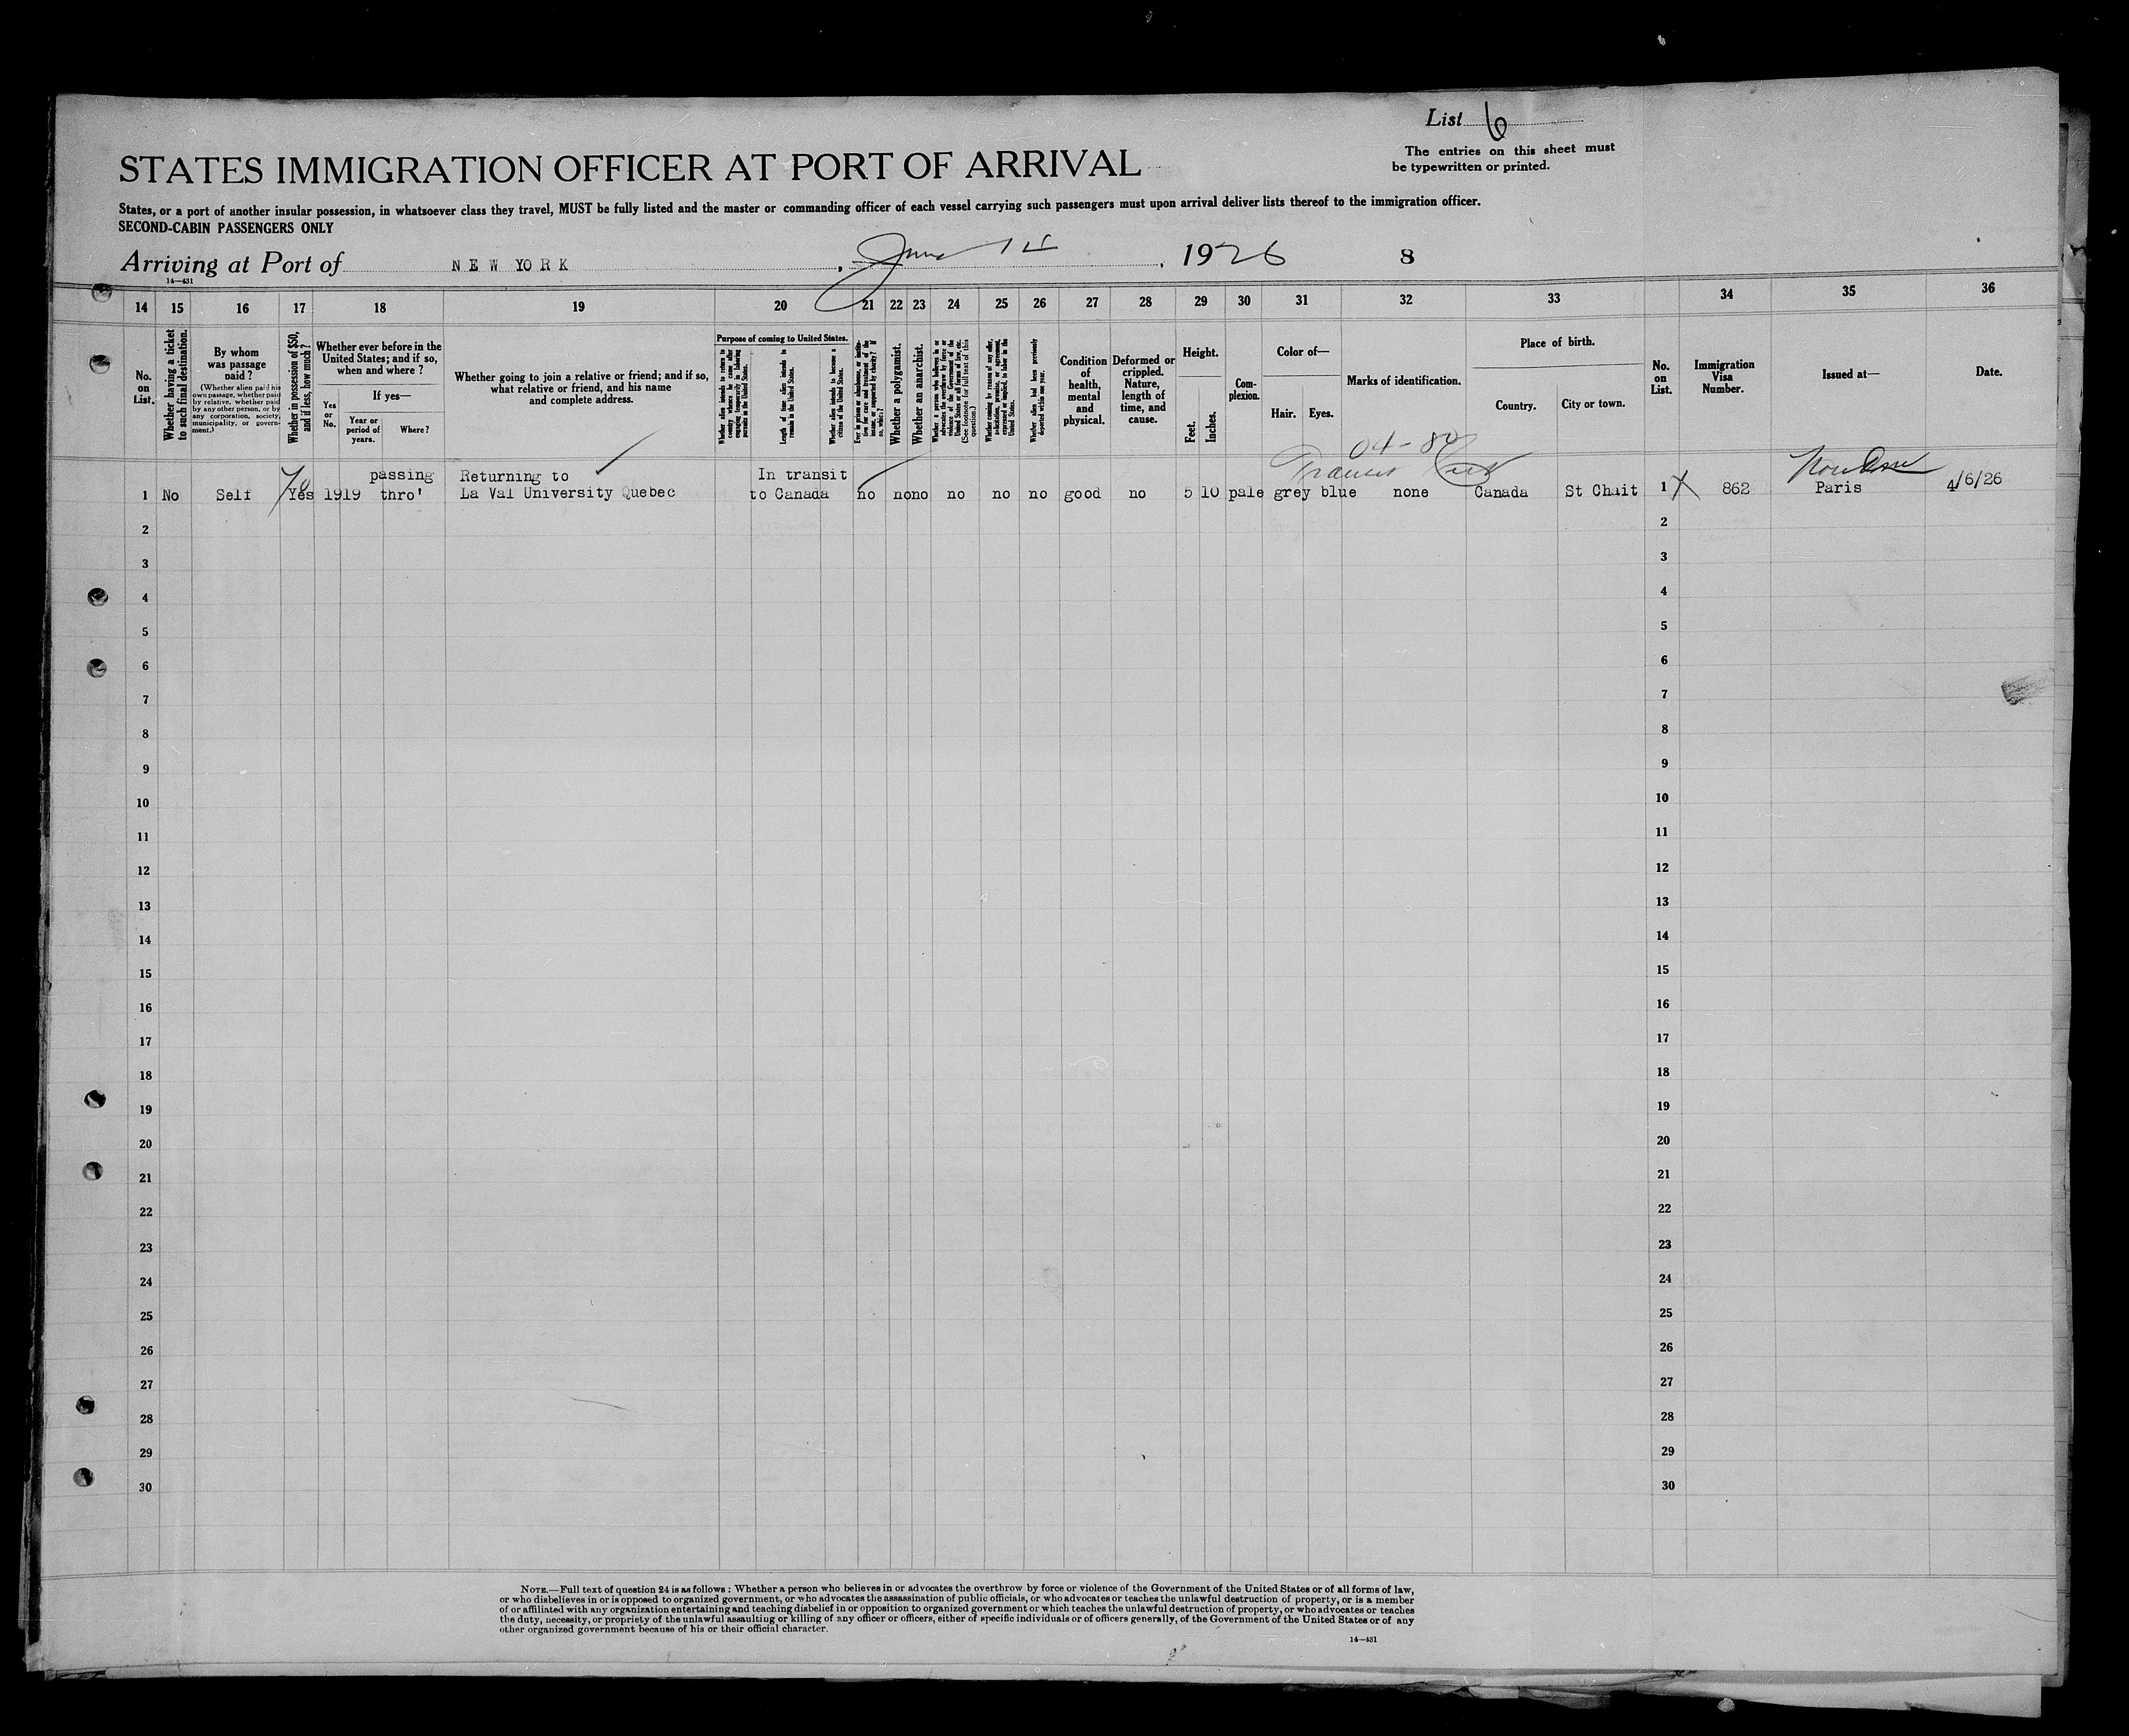 List 6
The entries on this sheet must
be typewritten or printed.
STATES IMMIGRATION OFFICER AT PORT OF ARRIVAL
States, or a port of another insular possession, in whatsoever class they travel, MUST be fully listed and the master or commanding officer of each vessel carrying such passengers must upon arrival deliver lists thereof to the immigration officer.
SECOND-CABIN PASSENGERS ONLY
Arriving at Port of NEW YORK, June, 1926 8
14—431
14 15 16 17 18 19 20 21 22 23 24 25 26 27 28 29 30 31 32 33 34 35 36
No.
on
List.
Whether having a ticket
to such final destination.
By whom
was passage
paid?
(Whether alien paid his
own passage, whether paid
by relative, whether paid
by any other person, or by
any corporation, society,
municipality, or govern-
ment.)
Whether in possession of $50,
and if less, how much?
Whether ever before in the
United States; and if so,
when and where?
If yes—
Yes
or
No.
Year or
period of
years.
Where?
Whether going to join a relative or friend; and if so,
what relative or friend, and his name
and complete address.
Purpose of coming to United States.
Whether alien intends to return to
country whence he came after
engaging temporarily in laboring
pursuits in the United States.
Length of time alien intends to
remain in the United States.
Whether alien intends to become a
citizen of the United States.
Ever in prison or almshouse, or institu-
tion for care and treatment of the
insane, or supported by charity? If
so, which?
Whether a polygamist.
Whether an anarchist.
Whether a person who believes in or
advocates the overthrow by force or
violence of the Government of the
United States or all forms of law, etc.
(See footnote for full text of this
question.)
Whether coming by reason of any offer,
solicitation, promise, or agreement,
expressed or implied, to labor in the
United States.
Whether alien had been previously
deported within one year.
Condition
of
health,
mental
and
physical.
Deformed or
crippled.
Nature,
length of
time, and
cause.
Height.
Feet.
Inches.
Com-
plexion.
Color of—
Hair. Eyes.
Marks of identification.
Place of birth.
Country. City or town.
No.
on
List.
Immigration
Visa
Number.
Issued at—
Date.
04-80
Transit
passing Returning to In transit
1 No Self Yes 1919 thro' La Val University Quebec to Canada no no no no no no good no 5 10 pale grey blue none Canada St Chait 1 862 Paris 4/6/26
2 2
3 3
4 4
5 5
6 6
7 7
8 8
9 9
10 10
11 11
12 12
13 13
14 14
15 15
16 16
17 17
18 18
19 19
20 20
21 21
22 22
23 23
24 24
25 25
26 26
27 27
28 28
29 29
30 30
NOTE.—Full text of question 24 is as follows: Whether a person who believes in or advocates the overthrow by force or violence of the Government of the United States or of all forms of law,
or who disbelieves in or is opposed to organized government, or who advocates the assassination of public officials, or who advocates or teaches the unlawful destruction of property, or is a member
of or affiliated with any organization entertaining and teaching disbelief in or opposition to organized government or which teaches the unlawful destruction of property, or who advocates or teaches
the duty, necessity, or propriety of the unlawful assaulting or killing of any officer or officers, either of specific individuals or of officers generally, of the Government of the United States or of any
other organized government because of his or their official character.
14—431